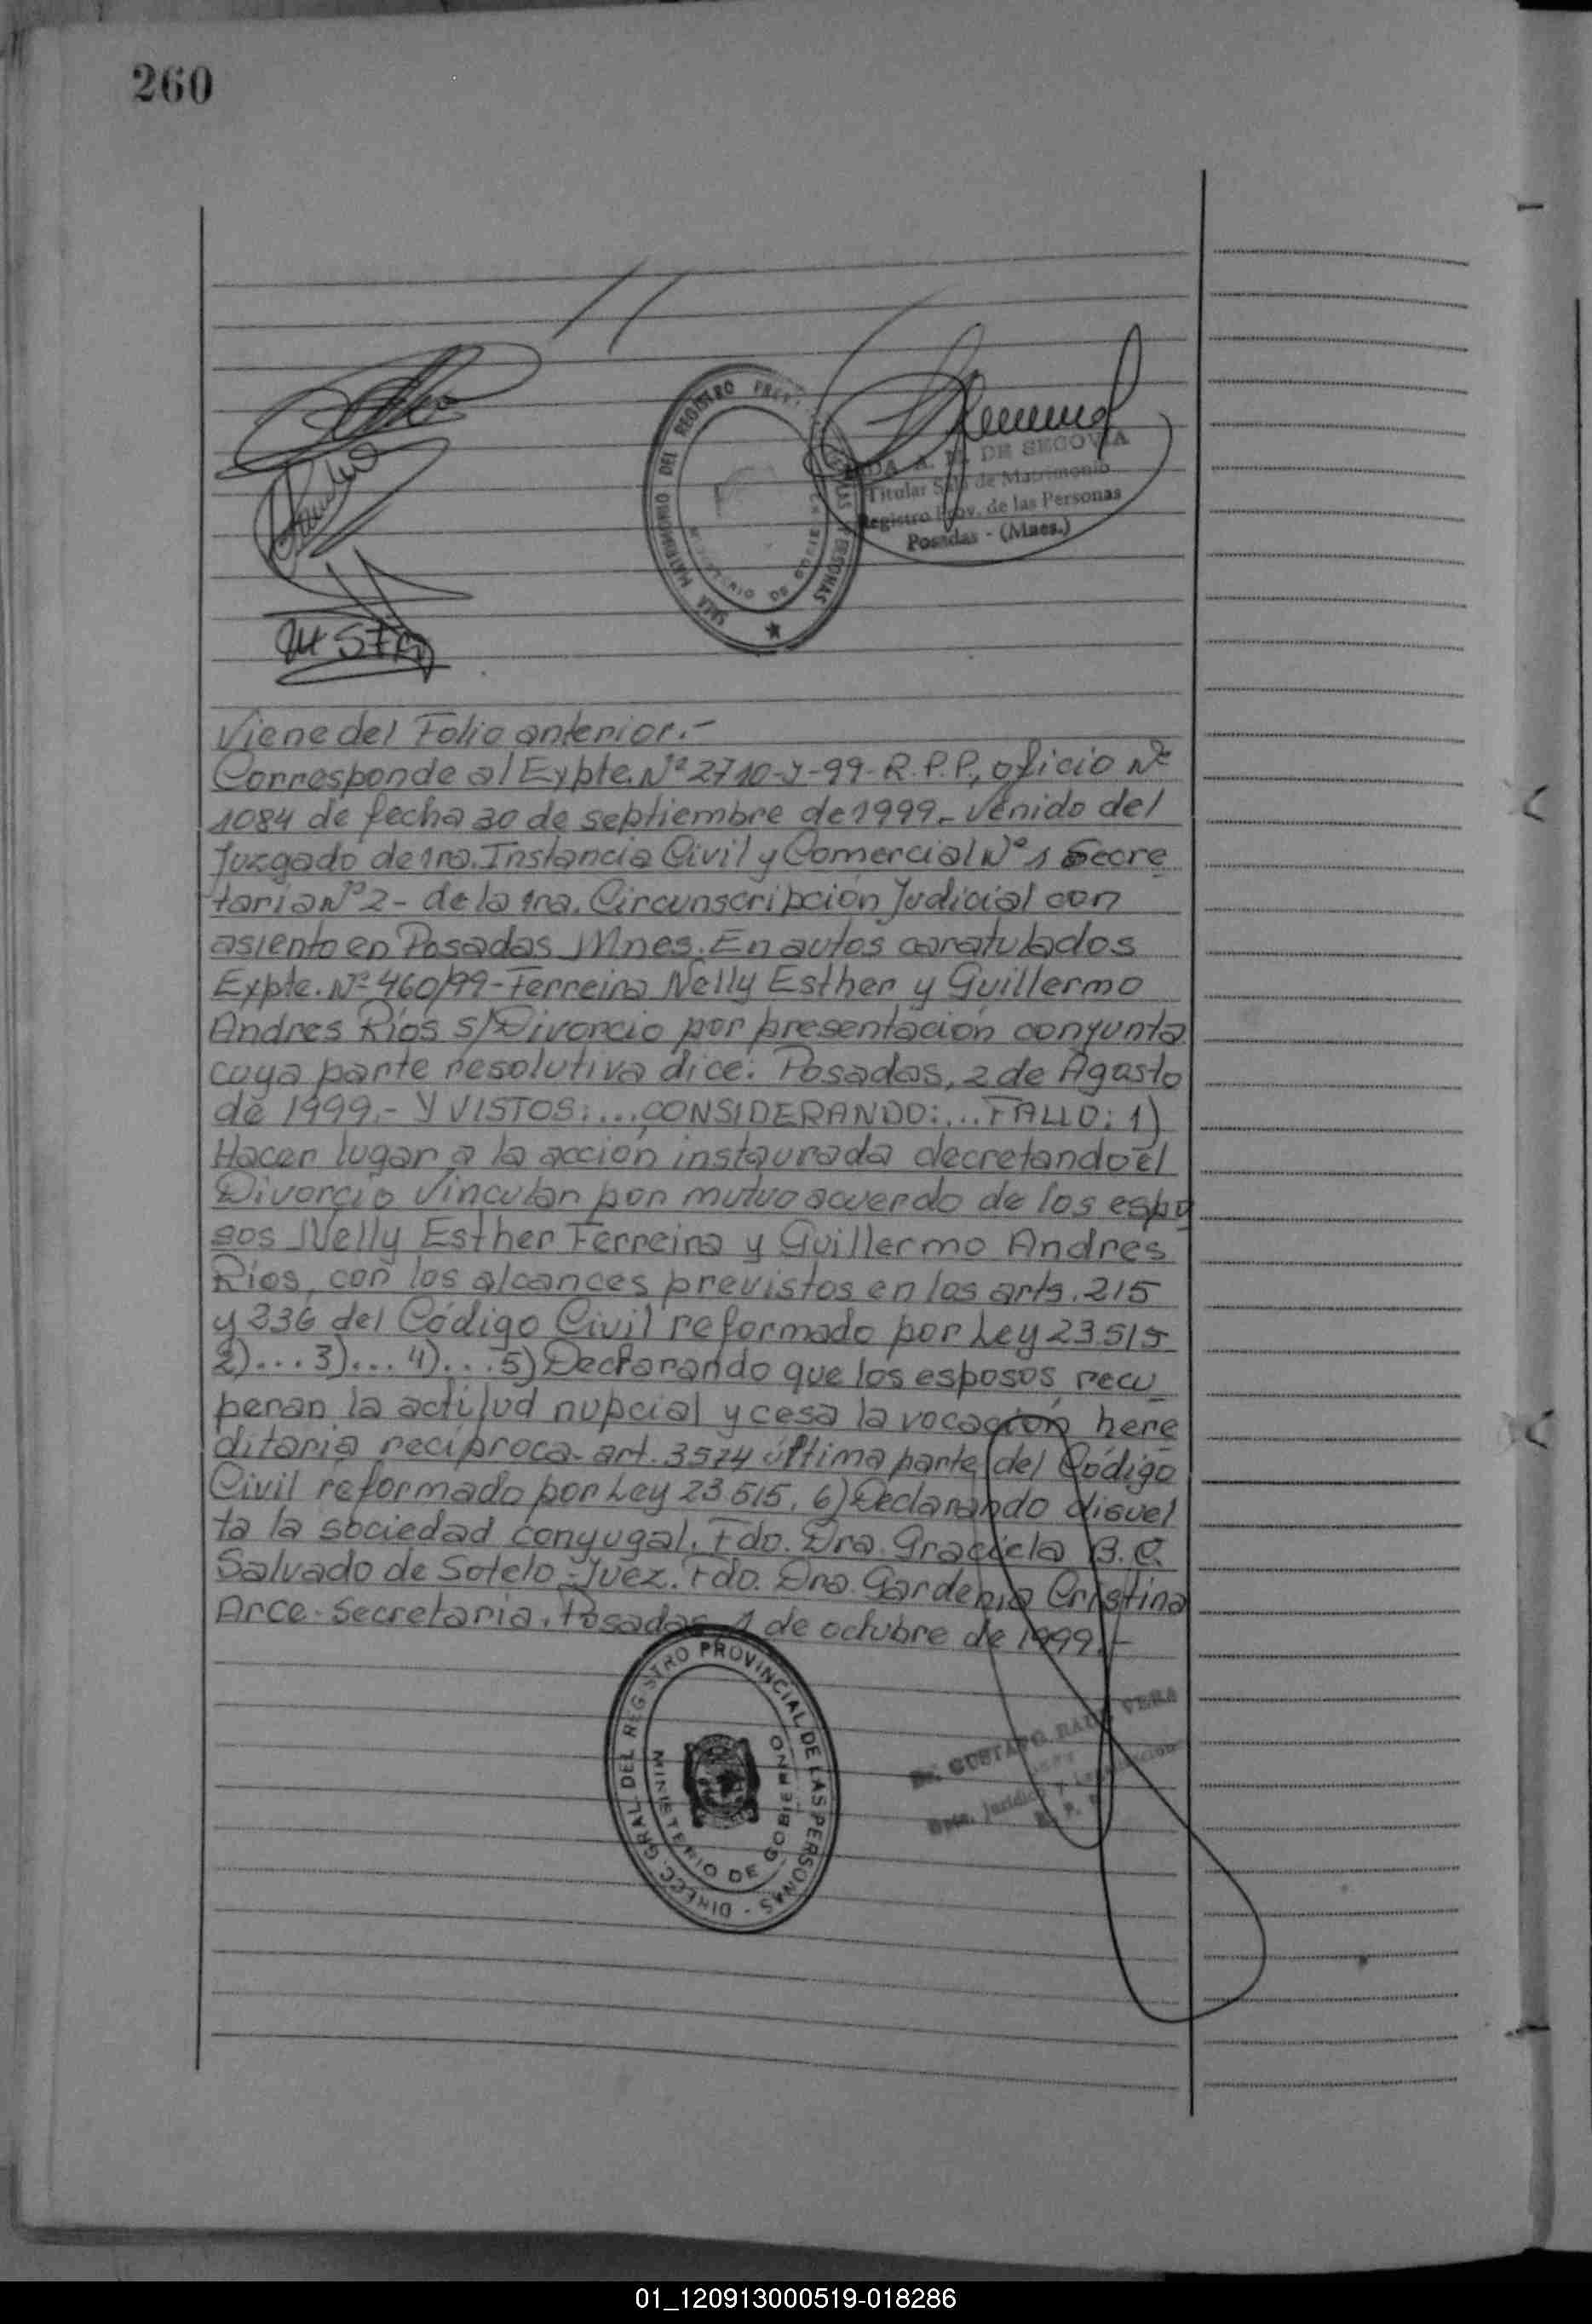 260
SALA MATRIMONIO DEL REGISTRO PROV. PERSONAS
MINISTERIO DE GOBIERNO
A. DE SEGOVIA
Titular Sala de Matrimonio
Registro Prov. de las Personas
Posadas - (Mnes.)
Viene del Folio anterior.-
Corresponde al Expte. Nº 2710-J-99-R.P.P., oficio Nº
1084 de fecha 30 de septiembre de 1999.- Venido del
Juzgado de 1ra. Instancia Civil y Comercial Nº 1 Secre
taria Nº 2- de la 1ra. Circunscripción Judicial con
asiento en Posadas Mnes. En autos caratulados
Expte. Nº 460/99-Ferreira Nelly Esther y Guillermo
Andres Ríos S/Divorcio por presentación conjunta
cuya parte resolutiva dice: Posadas, 2 de Agosto
de 1999.- Y VISTOS:...CONSIDERANDO:...FALLO: 1)
Hacer lugar a la acción instaurada decretando el
Divorcio Vincular por mutuo acuerdo de los espo
sos Nelly Esther Ferreira y Guillermo Andres
Ríos, con los alcances previstos en los arts. 215
y 236 del Código Civil reformado por Ley 23.515
2)...3)...4)...5) Declarando que los esposos recu
peran la actitud nupcial y cesa la vocación here
ditaria recíproca- art. 3574 última parte del Código
Civil reformado por Ley 23.515, 6) Declarando disuel
ta la sociedad conyugal. Fdo. Dra. Graciela B. C.
Salvado de Sotelo -Juez. Fdo. Dra. Gardenia Cristina
Arce- Secretaria. Posadas, 1 de octubre de 1999.-
DIRECC. GRAL DEL REGISTRO PROVINCIAL DE LAS PERSONAS -
MINISTERIO DE GOBIERNO
Dr. GUSTAVO RAUL VERA
Dpto. Jurídico y
R. P. P.
01_120913000519-018286